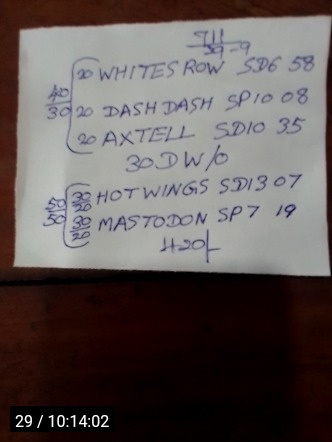 711
39-9
40 20 WHITES ROW SD6 58
30 20 DASH DASH SP10 08
20 AXTELL SD10 35
30 D W/O
50 30 20 HOTWINGS SD13 07
50 30 20 MASTODON SP7 19
420/-
29 / 10:14:02